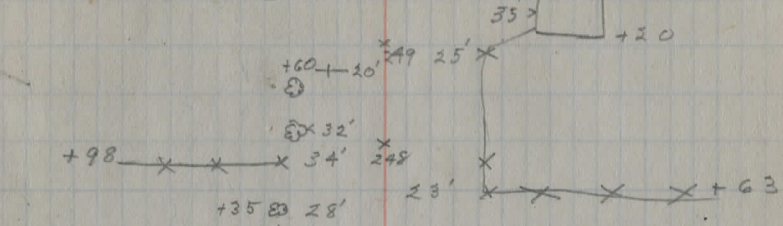 35
+20
249 25'
+60 20'
32'
+98 34' 248
23' +63
+35 28'